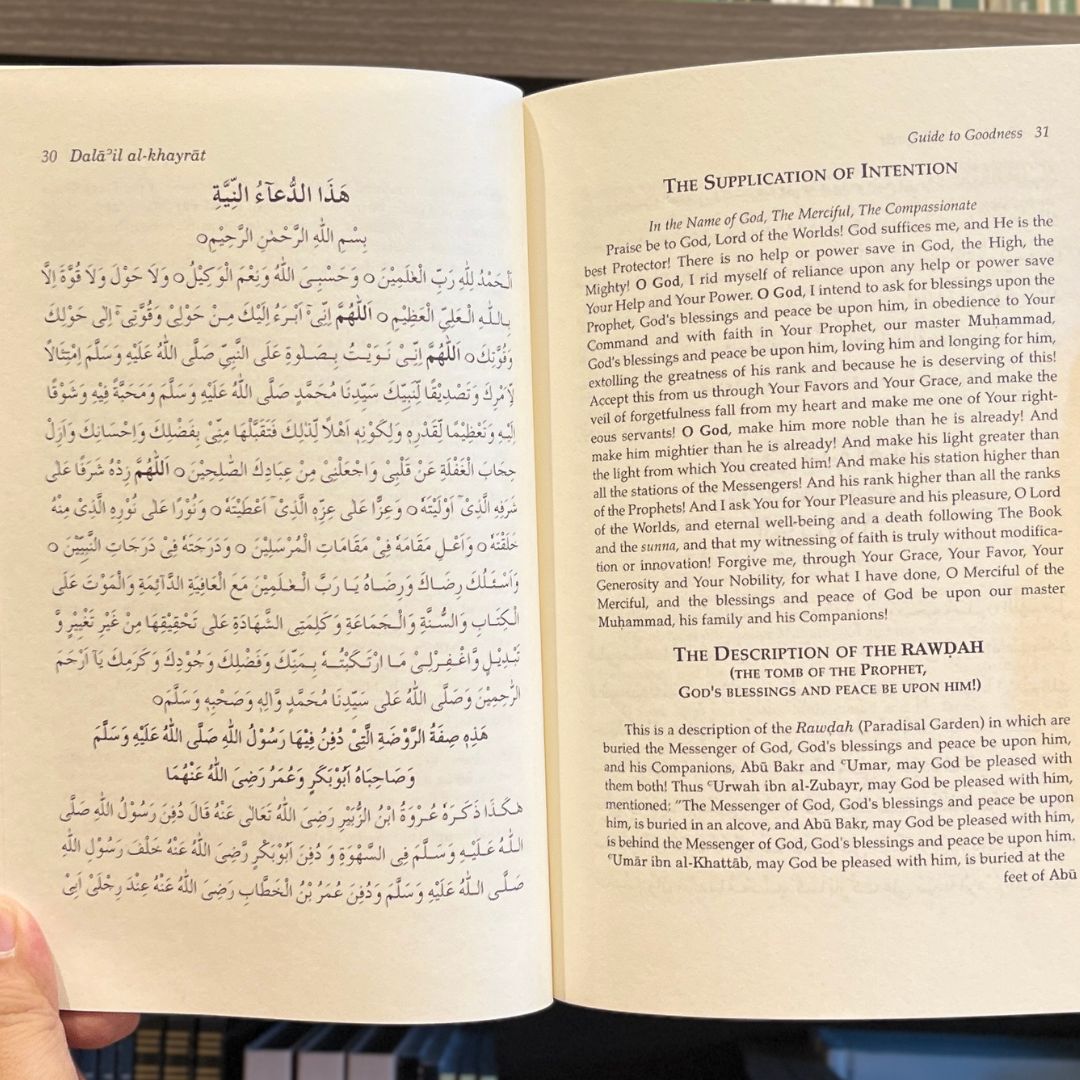 30 Dalāʾil al-khayrāt
هَذَا الدُّعآءُ النِّيَّةِ
بِسْمِ اللهِ الرَّحْمٰنِ الرَّحِيْمِ○
اَلْحَمْدُ لِلّٰهِ رَبِّ الْعٰلَمِيْنَ ○ وَحَسْبِىَ اللهُ وَنِعْمَ الْوَكِيْلُ ○ وَلَا حَوْلَ وَلَا قُوَّةَ اِلَّا
بِاللهِ الْعَلِيِّ الْعَظِيْمِ ○ اَللّٰهُمَّ اِنِّىْٓ اَبْرَءُ اِلَيْكَ مِنْ حَوْلِىْ وَقُوَّتِىْٓ اِلٰى حَوْلِكَ
وَقُوَّتِكَ○ اَللّٰهُمَّ اِنِّىْ نَوَيْتُ بِصَلٰوةِ عَلَى النَّبِىِّ صَلَّى اللهُ عَلَيْهِ وَسَلَّمَ اِمْتِثَالًا
لِّاَمْرِكَ وَتَصْدِيْقًا لِّنَبِيِّكَ سَيِّدِنَا مُحَمَّدٍ صَلَّى اللهُ عَلَيْهِ وَسَلَّمَ وَمَحَبَّةً فِيْهِ وَشَوْقًا
اِلَيْهِ وَتَعْظِيْمًا لِّقَدْرِهٖ وَلِكَوْنِهٖ اَهْلًا لِّذٰلِكَ فَتَقَبَّلْهَا مِنِّىْ بِفَضْلِكَ وَاِحْسَانِكَ وَاَزِلْ
حِجَابَ الْغَفْلَةِ عَنْ قَلْبِىْ وَاجْعَلْنِىْ مِنْ عِبَادِكَ الصّٰلِحِيْنَ ○ اَللّٰهُمَّ زِدْهُ شَرَفًا عَلٰى
شَرَفِهِ الَّذِىْٓ اَوْلَيْتَهٗ ○ وَعِزًّا عَلٰى عِزِّهِ الَّذِىْٓ اَعْطَيْتَهٗ ○ وَنُوْرًا عَلٰى نُوْرِهِ الَّذِىْ مِنْهُ
خَلَقْتَهٗ ○ وَاَعْلِ مَقَامَهٗ فِىْ مَقَامَاتِ الْمُرْسَلِيْنَ ○ وَدَرَجَتَهٗ فِىْ دَرَجَاتِ النَّبِيِّيْنَ ○
وَاَسْئَلُكَ رِضَاكَ وَرِضَاهُ يَا رَبَّ الْعٰلَمِيْنَ مَعَ الْعَافِيَةِ الدَّآئِمَةِ وَالْمَوْتَ عَلَى
الْكِتَابِ وَالسُّنَّةِ وَالْجَمَاعَةِ وَكَلِمَتِى الشَّهَادَةِ عَلٰى تَحْقِيْقِهَا مِنْ غَيْرِ تَغْيِيْرٍ وَّ
تَبْدِيْلٍ وَّاغْفِرْلِىْ مَا ارْتَكَبْتُهٗ بِمَنِّكَ وَفَضْلِكَ وَجُوْدِكَ وَكَرَمِكَ يَآ اَرْحَمَ
الرّٰحِمِيْنَ وَصَلَّى اللهُ عَلٰى سَيِّدِنَا مُحَمَّدٍ وَّاٰلِهٖ وَصَحْبِهٖ وَسَلَّمَ○
هَذِهٖ صِفَةُ الرَّوْضَةِ الَّتِىْ دُفِنَ فِيْهَا رَسُوْلُ اللهِ صَلَّى اللهُ عَلَيْهِ وَسَلَّمَ
وَصَاحِبَاهُ اَبُوْبَكَرٍ وَعُمَرُ رَضِىَ اللهُ عَنْهُمَا
هٰكَذَا ذَكَرَهٗ عُرْوَةُ ابْنُ الزُّبَيْرِ رَضِىَ اللهُ تَعَالٰى عَنْهُ قَالَ دُفِنَ رَسُوْلُ اللهِ صَلَّى
اللهُ عَلَيْهِ وَسَلَّمَ فِى السَّهْوَةِ وَ دُفِنَ اَبُوْبَكْرٍ رَّضِىَ اللهُ عَنْهُ خَلْفَ رَسُوْلِ اللهِ
صَلَّى اللهُ عَلَيْهِ وَسَلَّمَ وَدُفِنَ عُمَرُ بْنُ الْخَطَّابِ رَضِىَ اللهُ عَنْهُ عِنْدَ رِجْلَىْ اَبِىْ
Guide to Goodness 31
THE SUPPLICATION OF INTENTION
In the Name of God, The Merciful, The Compassionate
Praise be to God, Lord of the Worlds! God suffices me, and He is the
best Protector! There is no help or power save in God, the High, the
Mighty! O God, I rid myself of reliance upon any help or power save
Your Help and Your Power. O God, I intend to ask for blessings upon the
Prophet, God's blessings and peace be upon him, in obedience to Your
Command and with faith in Your Prophet, our master Muḥammad,
God's blessings and peace be upon him, loving him and longing for him,
extolling the greatness of his rank and because he is deserving of this!
Accept this from us through Your Favors and Your Grace, and make the
veil of forgetfulness fall from my heart and make me one of Your right-
eous servants! O God, make him more noble than he is already! And
make him mightier than he is already! And make his light greater than
the light from which You created him! And make his station higher than
all the stations of the Messengers! And his rank higher than all the ranks
of the Prophets! And I ask You for Your Pleasure and his pleasure, O Lord
of the Worlds, and eternal well-being and a death following The Book
and the sunna, and that my witnessing of faith is truly without modifica-
tion or innovation! Forgive me, through Your Grace, Your Favor, Your
Generosity and Your Nobility, for what I have done, O Merciful of the
Merciful, and the blessings and peace of God be upon our master
Muḥammad, his family and his Companions!
THE DESCRIPTION OF THE RAWḌAH
(THE TOMB OF THE PROPHET,
GOD'S BLESSINGS AND PEACE BE UPON HIM!)
This is a description of the Rawḍah (Paradisal Garden) in which are
buried the Messenger of God, God's blessings and peace be upon him,
and his Companions, Abū Bakr and ʿUmar, may God be pleased with
them both! Thus ʿUrwah ibn al-Zubayr, may God be pleased with him,
mentioned: "The Messenger of God, God's blessings and peace be upon
him, is buried in an alcove, and Abū Bakr, may God be pleased with him,
is behind the Messenger of God, God's blessings and peace be upon him.
ʿUmār ibn al-Khattāb, may God be pleased with him, is buried at the
feet of Abū